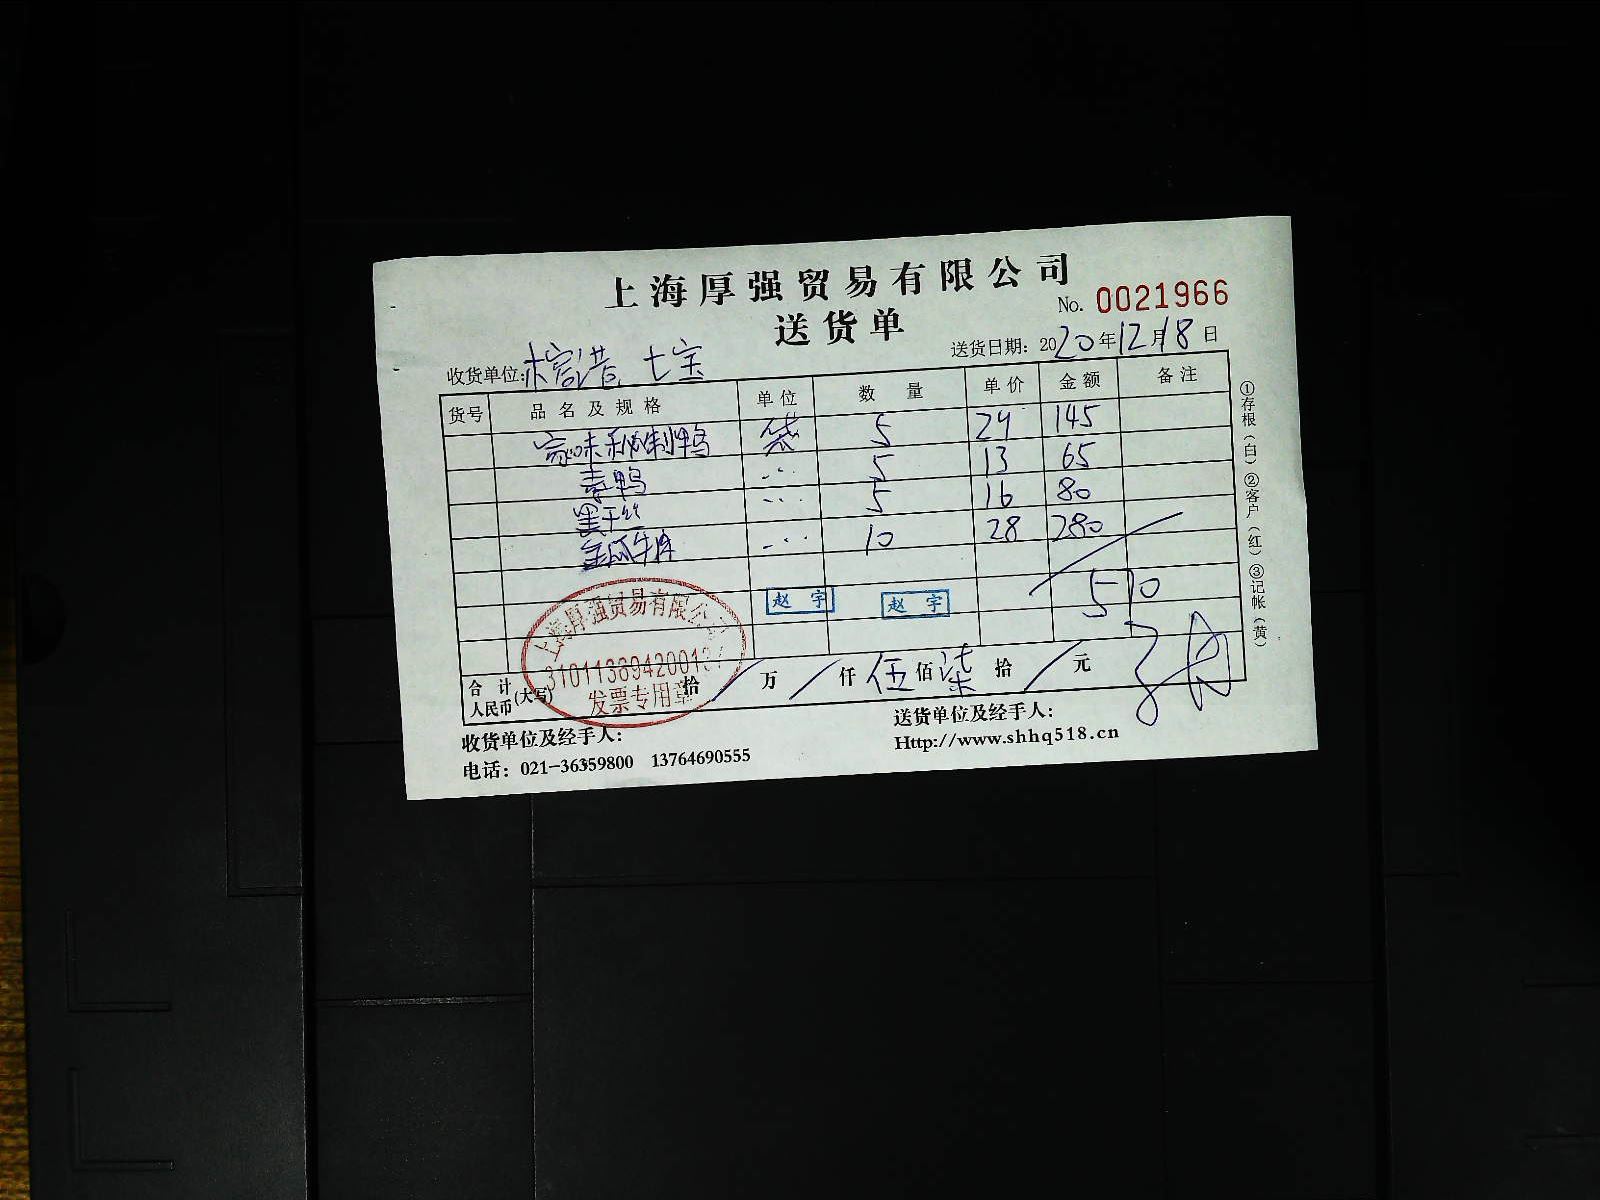 上海厚强贸易有限公司
No. 0021966
送货单
收货单位: 榕港 七宝
送货日期: 2020年12月18日
货号 品名及规格 单位 数量 单价 金额 备注
家味秘制鸭 袋 5 29 145
素鸭 ... 5 13 65
黑干丝 ... 5 16 80
金瓜牛 ... 10 28 280
赵宇 赵宇
570
上海厚强贸易有限公司
发票专用章
合计人民币(大写) 拾 / 万 / 仟 伍 佰 柒 拾 / 元
收货单位及经手人:
送货单位及经手人:
电话: 021-36359800 13764690555
Http://www.shhq518.cn
①存根(白)②客户(红)③记帐(黄)